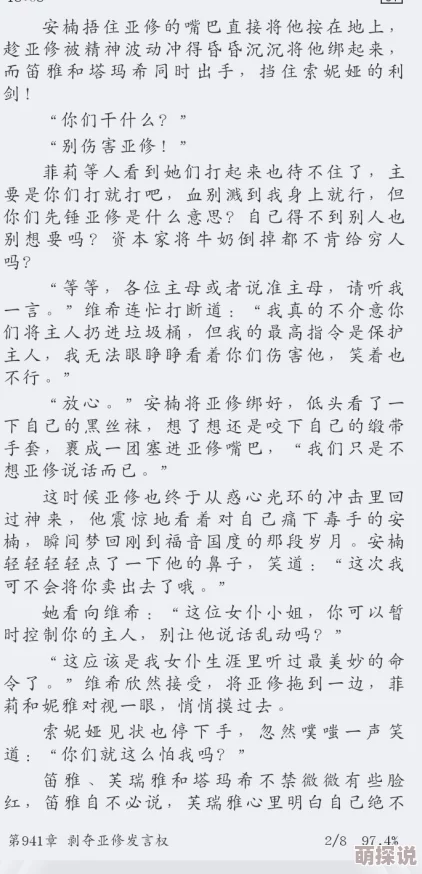 安楠捂住亚修的嘴巴直接将他按在地上，
趁亚修被精神波动冲得昏昏沉沉将他绑起来，
而笛雅和塔玛希同时出手，挡住索妮娅的利
剑！
“你们干什么？”
“别伤害亚修！”
菲莉等人看到她们打起来也待不住了，主
要是你们打就打吧，血别溅到我身上就行，但
你们先锤亚修是什么意思？自己得不到别人也
别想要吗？资本家将牛奶倒掉都不肯给穷人
吗？
“等等，各位主母或者说准主母，请听我
一言。”维希连忙打断道：“我真的不介意你
们将主人扔进垃圾桶，但我的最高指令是保护
主人，我无法眼睁睁看着你们伤害他，笑着也
不行。”
“放心。”安楠将亚修绑好，低头看了一
下自己的黑丝袜，想了想还是咬下自己的缎带
手套，裹成一团塞进亚修嘴巴，“我们只是不
想亚修说话而已。”
这时候亚修也终于从惑心光环的冲击里回
过神来，他震惊地看着对自己痛下毒手的安
楠，瞬间梦回刚到福音国度的那段岁月。安楠
轻轻轻轻点了一下他的鼻子，笑道：“这次我
可不会将你卖出去了哦。”
她看向维希：“这位女仆小姐，你可以暂
时控制你的主人，别让他说话乱动吗？”
“这应该是我女仆生涯里听过最美妙的命
令了。”维希欣然接受，将亚修拖到一边，菲
莉和妮雅对视一眼，悄悄摸过去。
索妮娅见状也停下手，忽然噗嗤一声笑
道：“你们就这么怕我吗？”
笛雅、芙瑞雅和塔玛希不禁微微有些脸
红，笛雅自不必说，芙瑞雅心里明白自己绝不
第941章 剥夺亚修发言权 2/8 97.4%
萌探说